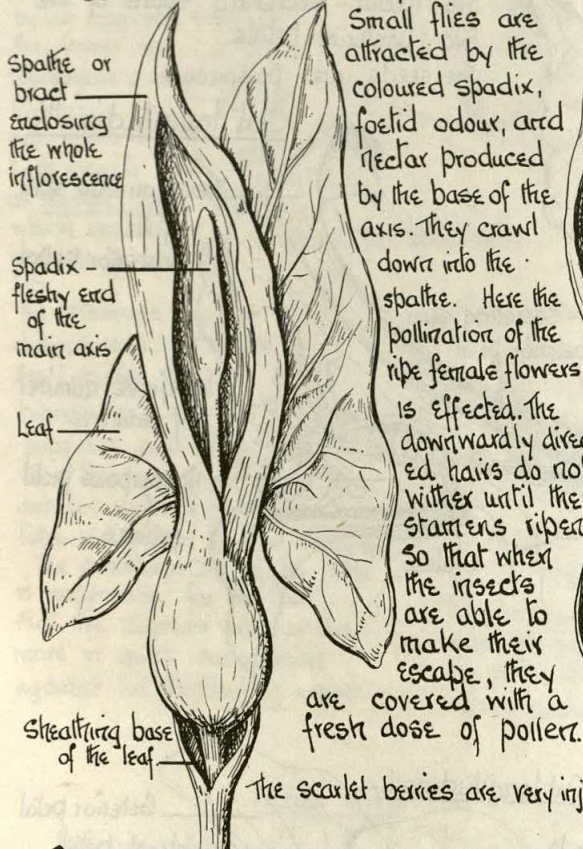 Spathe or
bract
enclosing
the whole
inflorescence
Spadix -
fleshy end
of the
main axis
Leaf
Sheathing base
of the leaf
Small flies are
attracted by the
coloured spadix,
foetid odour, and
nectar produced
by the base of the
axis. They crawl
down into the
spathe. Here the
pollination of the
ripe female flowers
is effected. The
downwardly direc
ed hairs do no
wither until the
stamens ripen
so that when
the insects
are able to
make their
escape, they
are covered with a
fresh dose of pollen.
The scarlet berries are very inj